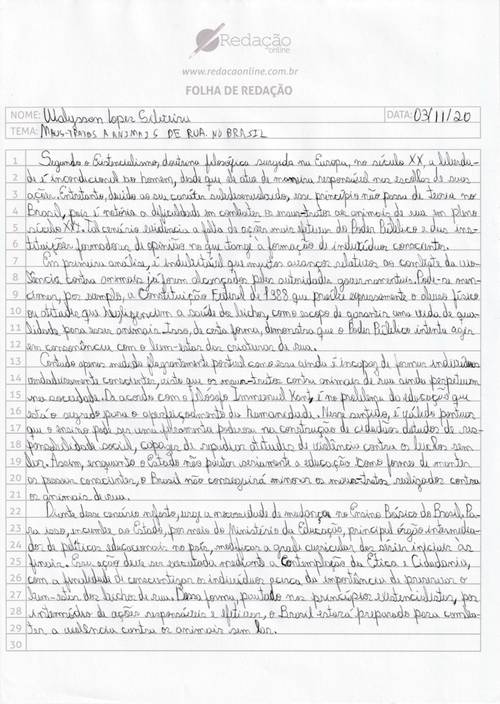 Redação
online
www.redacaonline.com.br
FOLHA DE REDAÇÃO
NOME: Walysson Lopes Silveira DATA: 03/11/20
TEMA: MAUS-TRATOS A ANIMAIS DE RUA NO BRASIL
1 Segundo o Existencialismo, doutrina filosófica surgida na Europa, no século XX, a liberda-
2 de é incondicional ao homem, desde que ele atue de maneira responsável nas escolhas de suas
3 ações. Entretanto, devido ao seu caráter subdesenvolvido, esse princípio não passa de teoria no
4 Brasil, pois é notória a dificuldade em combater os maus-tratos aos animais de rua em pleno
5 século XXI. Tal cenário evidencia a falta de ações mais efetivas do Poder Público e das ins-
6 tituições formadoras de opinião no que tange à formação de indivíduos conscientes.
7 Em primeira análise, é indubitável que muitos avanços relativos ao combate da vio-
8 lência contra animais já foram alcançados pelas autoridades governamentais. Pode-se men-
9 cionar, por exemplo, a Constituição Federal de 1988 que proíbe expressamente o abuso físico
10 ou atitude que negligenciem a saúde do bicho, como escopo de garantir uma vida de qua-
11 lidade para esses animais. Isso, de certa forma, demonstra que o Poder Público intenta agir
12 em consonância com o bem-estar das criaturas de rua.
13 Contudo apenas medida flagrantemente pontual como essa ainda é incapaz de formar indivíduos
14 verdadeiramente conscientes, visto que os maus-tratos contra animais de rua ainda perpetuam
15 na sociedade. De acordo com o filósofo Immanuel Kant, é no problema da educação que
16 está o segredo para o aperfeiçoamento da humanidade. Nesse sentido, é válido pontuar
17 que o ensino pode ser uma ferramenta poderosa na construção de cidadãos dotados de res-
18 ponsabilidade social, capazes de repudiar atitudes de violência contra os bichos sem
19 lar. Assim, enquanto o Estado não pautar seriamente a educação como forma de manter
20 as pessoas conscientes, o Brasil não conseguirá minorar os maus-tratos realizados contra
21 os animais de rua.
22 Diante desse cenário nefasto, urge a necessidade de mudanças no Ensino Básico do Brasil. Pa-
23 ra isso, incumbe ao Estado, por meio do Ministério da Educação, principal órgão intermedia-
24 dor de políticas educacionais no país, modificar a grade curricular das séries iniciais às
25 finais. Essa ação deve ser executada mediante a contemplação da Ética e Cidadania,
26 com a finalidade de conscientizar os indivíduos acerca da importância de preservar o
27 bem-estar dos bichos de rua. Dessa forma, pautado nos princípios existencialistas, por
28 intermédio de ações responsáveis e efetivas, o Brasil estará preparado para comba-
29 ter a violência contra os animais sem lar.
30